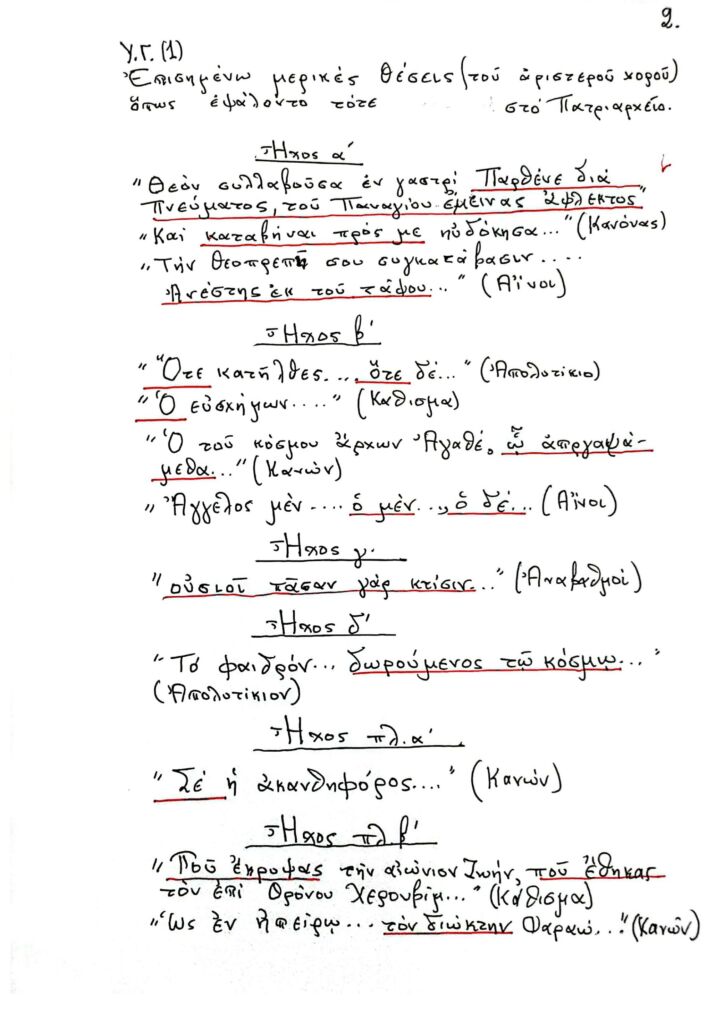 2.
Υ.Γ. (1)
Ἐπισημένω μερικές θέσεις (τοῦ ἀριστεροῦ χοροῦ)
ὅπως ἐψάλοντο τότε στό Πατριαρχεῖο.
Ἦχος α΄
"Θεόν συλλαβοῦσα ἐν γαστρί Παρθένε διά
Πνεύματος, τοῦ Παναγίου ἔμεινας ἄφλεκτος"
"Καί καταβῆναι πρός με ηὐδόκησα..." (Κανόνας)
"Τήν θεοπρεπῆ σου συγκατάβασιν....
Ἀνέστης ἐκ τοῦ τάφου..." (Αἶνοι)
Ἦχος β΄
"Ὅτε κατῆλθες... ὅτε δέ..." (Ἀπολυτίκιο)
"Ὁ εὐσχήμων...." (Κάθισμα)
"Ὁ τοῦ κόσμου ἄρχων Ἀγαθέ, ᾧ ἀπεγραψά-
μεθα..." (Κανών)
"Ἄγγελος μέν .... ὁ μέν..., ὁ δέ... (Αἶνοι)
Ἦχος γ.
"οὐσιοῖ πᾶσαν γάρ κτίσιν..." (Ἀναβαθμοί)
Ἦχος δ΄
"Τό φαιδρόν... δωρούμενος τῷ κόσμῳ..."
(Ἀπολυτίκιον)
Ἦχος πλ. α΄
"Σέ ἡ ἀκανθηφόρος...." (Κανών)
Ἦχος πλ. β΄
"Ποῦ ἔκρυψας τήν αἰώνιον Ζωήν, ποῦ ἔθηκας
τόν ἐπί Θρόνου Χερουβίμ..." (Κάθισμα)
"Ὡς ἐν ἠπείρῳ... τόν διώκτην Φαραώ..." (Κανών)